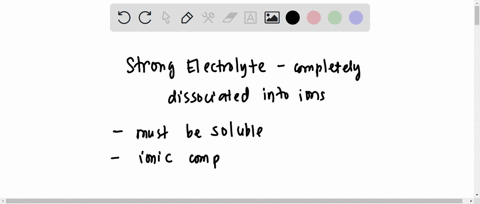 Strong Electrolyte - completely
dissociated into ions
- must be soluble
- ionic comp